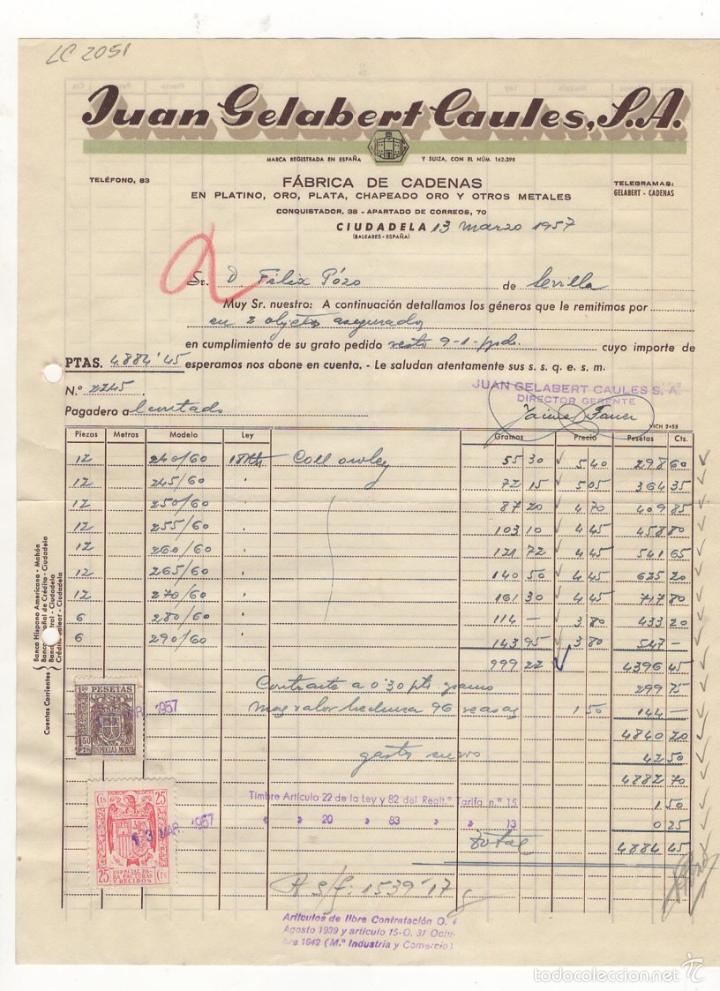 LC 2051
Juan Gelabert Caules, S.A.
MARCA REGISTRADA EN ESPAÑA Y SUIZA, CON EL NÚM. 162.398
TELÉFONO, 83
FÁBRICA DE CADENAS
TELEGRAMAS:
GELABERT - CADENAS
EN PLATINO, ORO, PLATA, CHAPEADO ORO Y OTROS METALES
CONQUISTADOR, 38 - APARTADO DE CORREOS, 70
CIUDADELA 13 marzo 1957
(BALEARES - ESPAÑA)
Sr. D Félix Pózo de Sevilla
Muy Sr. nuestro: A continuación detallamos los géneros que le remitimos por
en 2 objetos asegurados
en cumplimiento de su grato pedido resto 9-1-ppdo. cuyo importe de
PTAS. 4.884'45 esperamos nos abone en cuenta. - Le saludan atentamente sus s. s. q. e. s. m.
N.º 2245.
JUAN GELABERT CAULES S. A.
DIRECTOR GERENTE
Pagadero a contado
VICH 2-55
Piezas Metros Modelo Ley Gramos Precio Pesetas Cts.
12 240/60 18 Kts 55 30 5 40 298 60
12 245/60 " 72 15 5 05 364 35
12 250/60 " 87 20 4 70 409 85
12 255/60 " 103 10 4 45 458 80
12 260/60 " 121 72 4 45 541 65
12 265/60 " 140 50 4 45 625 20
12 270/60 " 161 30 4 45 717 80
6 280/60 114 — 3 80 433 20
6 290/60 143 95 3 80 547 —
999 22 4396 45
Contraste a 0'30 pts gramo 299 75
mas valor hechura 96 1 50 144 —
4840 20
42 50
4882 70
Timbre Artículo 22 de la Ley y 82 del Reglt.º Tarifa n.º 15 1 50
« » 20 » 83 » » 13 0 25
Total 4884 45
1539'17
Artículos de libre Contratación O. 4
Agosto 1939 y artículo 15-O. 31 Octu-
bre 1942 (M.º Industria y Comercio)
Cuentas Corrientes
Banco Hispano Americano - Mahón
Banco Español de Crédito - Ciudadela
Ciudadela
Ciudadela
PESETAS
ESPECIAL MOVIL
MAR. 1957
25 Cts
13 MAR. 1957
ESPECIAL PARA FACTURAS
Y RECIBOS
25 Cts
todocoleccion.net